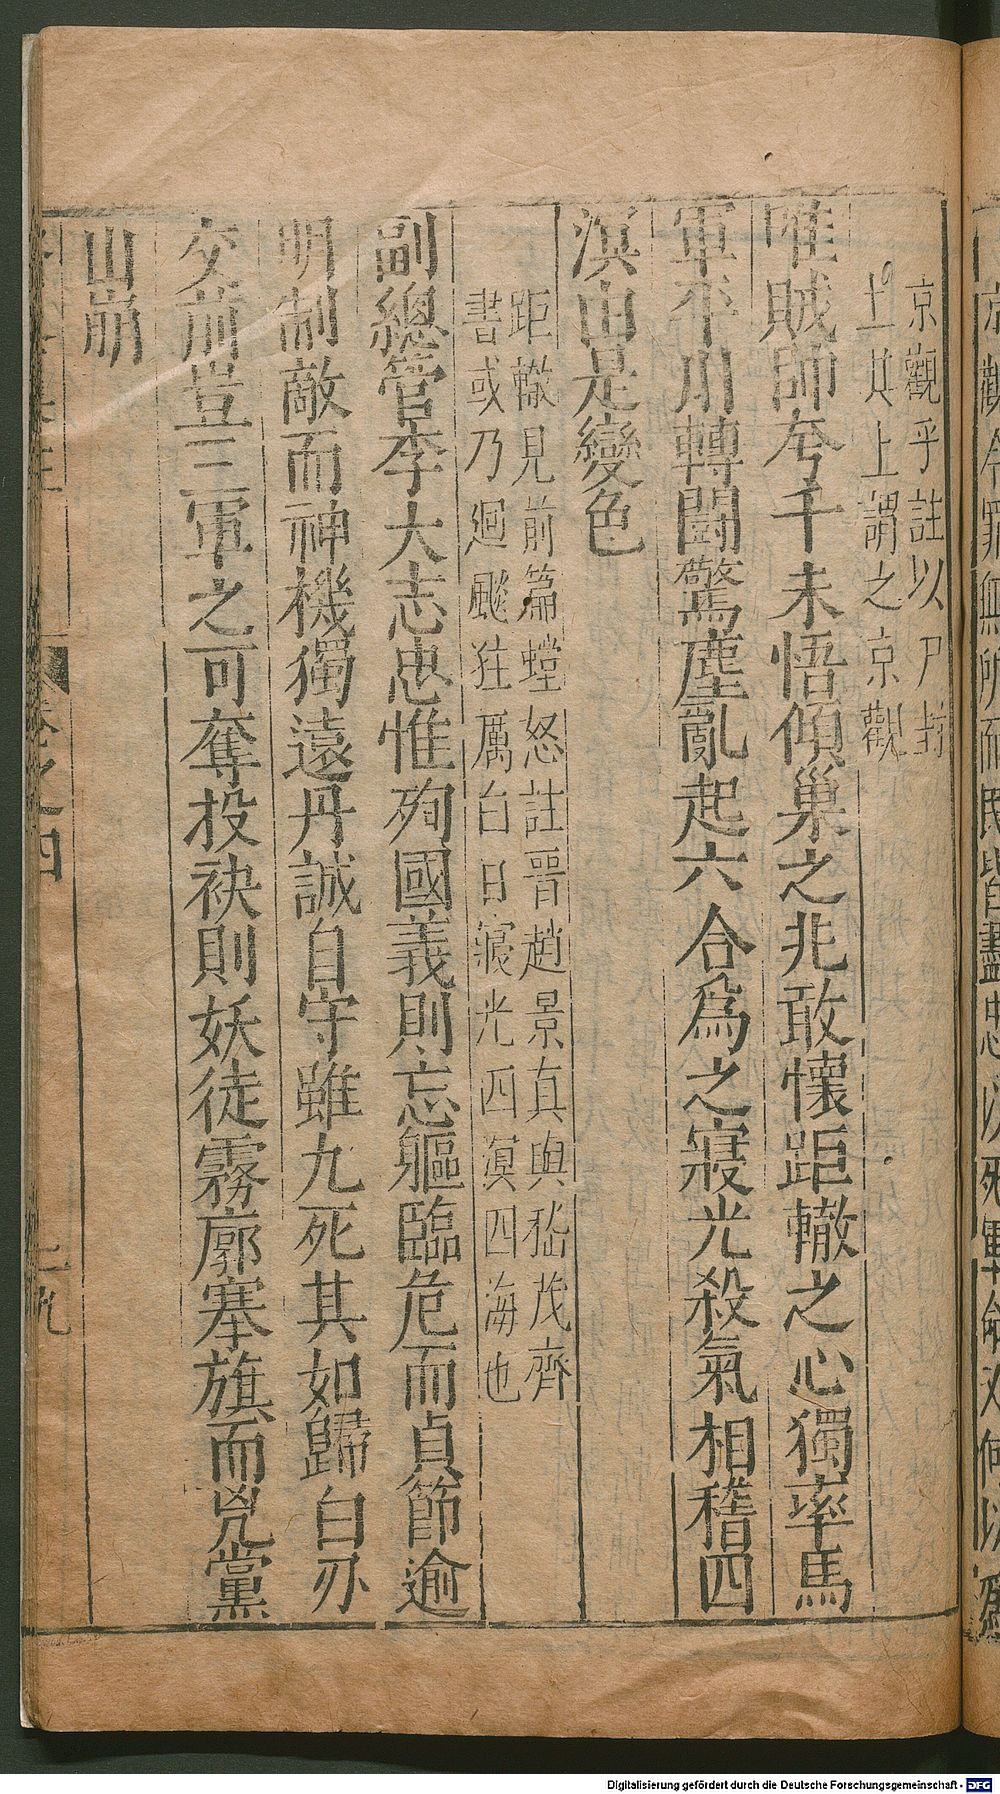 京觀乎註以尸封
上其上謂之京觀
唯賊師夸千未悟傾巢之兆敢懷距轍之心獨率馬
軍平川轉鬬驚塵亂起六合爲之寢光殺氣相稽四
溟由是變色
距轍見前篇螳怒註晉趙景真與嵇茂齊
書或乃迴飈狂厲白日寢光四溟四海也
副總管李大志忠惟殉國義則忘軀臨危而貞節逾
明制敵而神機獨遠丹誠自守雖九死其如歸白刃
交前豈三軍之可奪投袂則妖徒霧廓塞旗而兇黨
山崩
卷之四
十九
京觀今罪無所而民皆盡忠以死軍命又何以爲
Digitalisierung gefördert durch die Deutsche Forschungsgemeinschaft - DFG